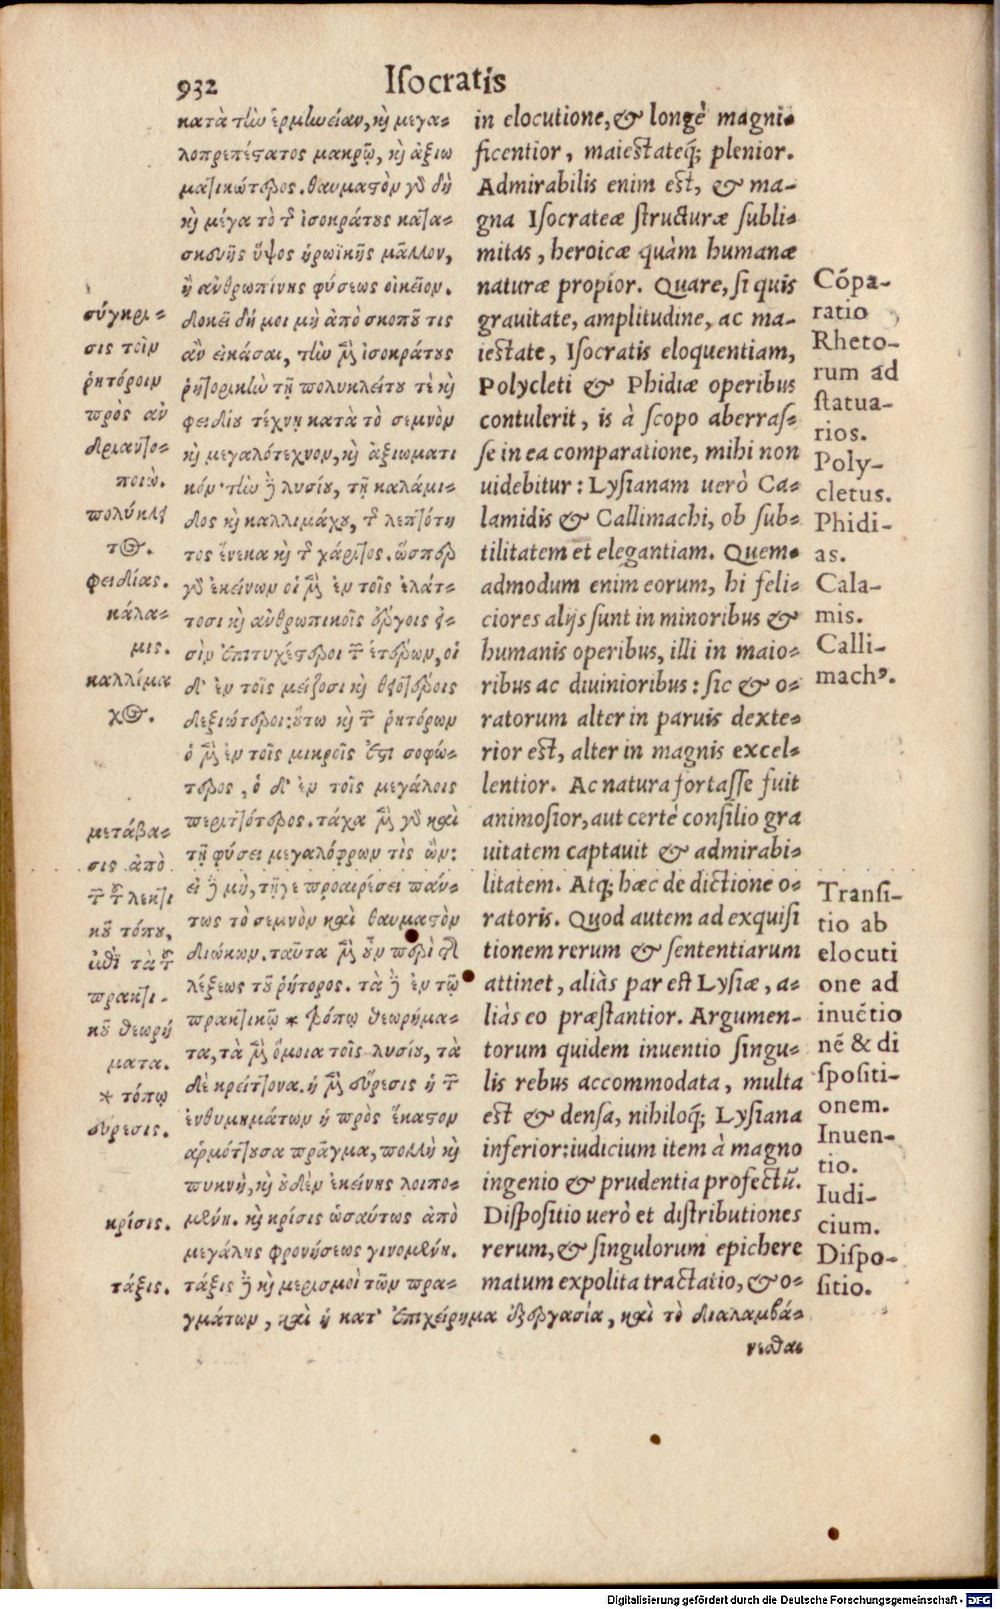 932
Isocratis
κατὰ τὴν ἑρμηνείαν, καὶ μεγα-
λοπρεπέστατος μακρῷ, καὶ ἀξιω
ματικώτερος. θαυμαστὸν γὰρ δὴ
καὶ μέγα τὸ τῆς ἰσοκράτους κατα-
σκευῆς ὕψος ἡρωϊκῆς μᾶλλον,
ἢ ἀνθρωπίνης φύσεως οἰκεῖον.
δοκεῖ δή μοι μὴ ἀπὸ σκοποῦ τις
ἂν εἰκάσαι, τὴν μὲν ἰσοκράτους
ῥητορικὴν τῇ πολυκλείτου τὲ καὶ
φειδίου τέχνῃ κατὰ τὸ σεμνὸν
καὶ μεγαλότεχνον, καὶ ἀξιωματι
κόν· τὴν δὲ λυσίου, τῇ καλάμι-
δος καὶ καλλιμάχου, τῆς λεπτότη
τος ἕνεκα καὶ τῆς χάριτος. ὥσπερ
γὰρ ἐκείνων οἱ μὲν ἐν τοῖς ἐλάτ-
τοσι καὶ ἀνθρωπικοῖς ἔργοις εἰ-
σὶν ἐπιτυχέστεροι τῶν ἑτέρων, οἱ
δ' ἐν τοῖς μείζοσι καὶ θειοτέροις
δεξιώτεροι: οὕτω καὶ τῶν ῥητόρων
ὁ μὲν ἐν τοῖς μικροῖς ἐστι σοφώ-
τερος, ὁ δ' ἐν τοῖς μεγάλοις
περιττότερος. τάχα μὲν γὰρ καὶ
τῇ φύσει μεγαλόφρων τὶς ὤν:
εἰ δὲ μὴ, τῇγε προαιρέσει πάν-
τως τὸ σεμνὸν καὶ θαυμαστὸν
διώκων. ταῦτα μὲν οὖν περὶ τῆς
λέξεως τοῦ ῥήτορος. τὰ δὲ ἐν τῷ
πρακτικῷ * τόπῳ θεωρήμα-
τα, τὰ μὲν ὅμοια τοῖς λυσίου, τὰ
δὲ κρείττονα. ἡ μὲν εὕρεσις ἡ τῶν
ἐνθυμημάτων ἡ πρὸς ἕκαστον
ἁρμόττουσα πρᾶγμα, πολλὴ καὶ
πυκνὴ, καὶ οὐδὲν ἐκείνης λειπο-
μένη. καὶ κρίσις ὡσαύτως ἀπὸ
μεγάλης φρονήσεως γινομένη.
τάξις δὲ καὶ μερισμοὶ τῶν πρα-
γμάτων, καὶ ἡ κατ' ἐπιχείρημα ἐξεργασία, καὶ τὸ διαλαμβά-
νεσθαι
σύγκρι-
σις τοῖν
ῥητόροιν
πρὸς ἀν
δριαντο-
ποιώ.
πολύκλει
τος.
φειδίας.
κάλα-
μις.
καλλίμα
χος.
μετάβα-
σις ἀπὸ
τοῦ λεκτι
κοῦ τόπου,
ἐπὶ τὰ τοῦ
πρακτι-
κοῦ θεωρή
ματα.
* τόπῳ
εὕρεσις.
κρίσις.
τάξις.
in elocutione, & longè magni-
ficentior, maiestateq́; plenior.
Admirabilis enim est, & ma-
gna Isocrateæ structuræ subli-
mitas, heroicæ quàm humanæ
naturæ propior. Quare, si quis
grauitate, amplitudine, ac ma-
iestate, Isocratis eloquentiam,
Polycleti & Phidiæ operibus
contulerit, is à scopo aberras-
se in ea comparatione, mihi non
uidebitur: Lysianam uerò Ca-
lamidis & Callimachi, ob sub-
tilitatem et elegantiam. Quem-
admodum enim eorum, hi feli-
ciores alijs sunt in minoribus &
humanis operibus, illi in maio-
ribus ac diuinioribus: sic & o-
ratorum alter in paruis dexte-
rior est, alter in magnis excel-
lentior. Ac natura fortasse fuit
animosior, aut certè consilio gra
uitatem captauit & admirabi-
litatem. Atq; hæc de dictione o-
ratoris. Quod autem ad exquisi
tionem rerum & sententiarum
attinet, aliàs par est Lysiæ, a-
liàs eo præstantior. Argumen-
torum quidem inuentio singu-
lis rebus accommodata, multa
est & densa, nihiloq́; Lysiana
inferior: iudicium item à magno
ingenio & prudentia profectũ.
Dispositio uerò et distributiones
rerum, & singulorum epichere
matum expolita tractatio, & o-
Cõpa-
ratio
Rheto-
rum ad
statua-
rios.
Poly-
cletus.
Phidi-
as.
Cala-
mis.
Calli-
machꝰ.
Transi-
tio ab
elocuti
one ad
inuẽtio
nẽ & di
spositi-
onem.
Inuen-
tio.
Iudi-
cium.
Dispo-
sitio.
Digitalisierung gefördert durch die Deutsche Forschungsgemeinschaft - DFG